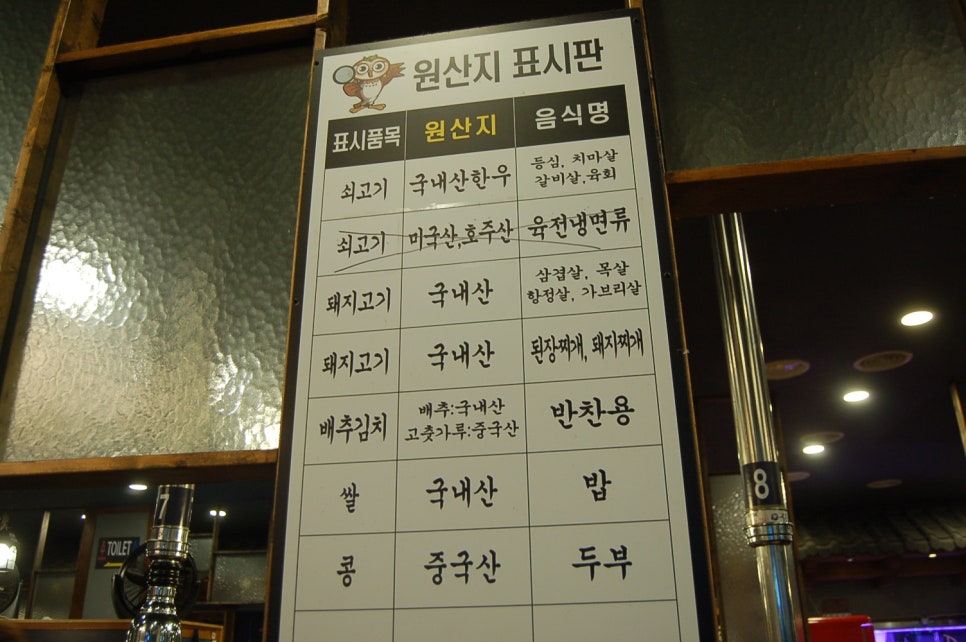 원산지 표시판
표시품목 원산지 음식명
쇠고기 국내산한우 등심, 치마살
갈비살,육회
쇠고기 미국산,호주산 육전냉면류
돼지고기 국내산 삼겹살, 목살
항정살, 가브리살
돼지고기 국내산 된장찌개, 돼지찌개
배추김치 배추:국내산
고춧가루:중국산 반찬용
쌀 국내산 밥
콩 중국산 두부
7
8
TOILET